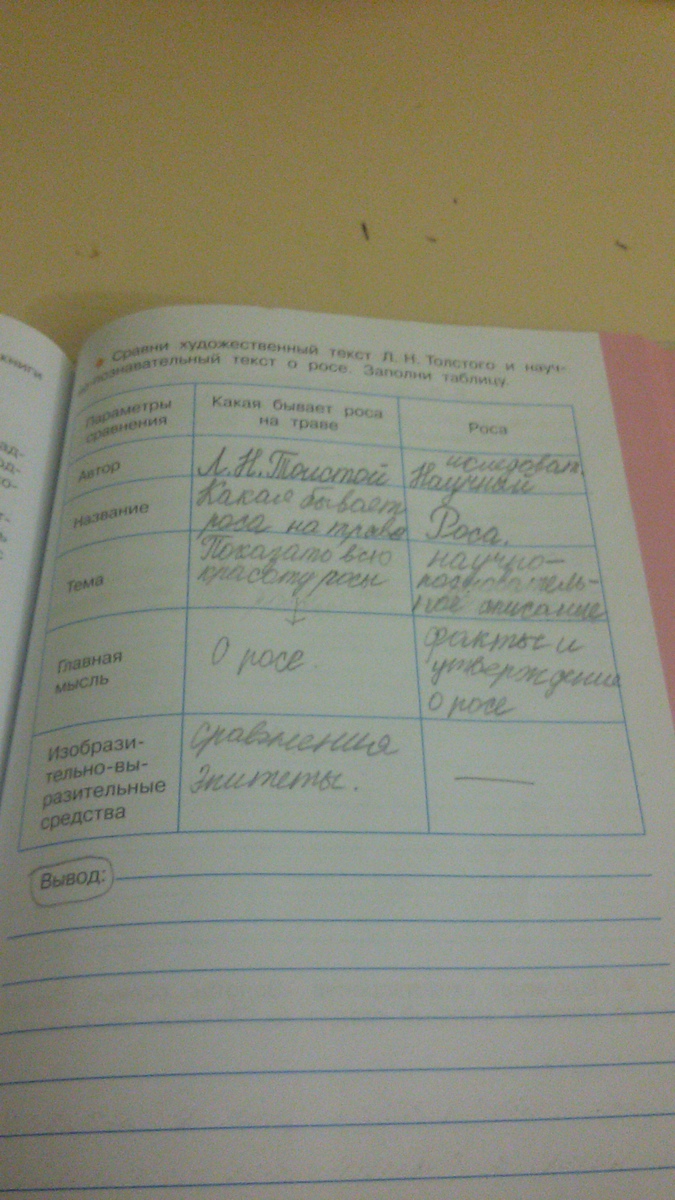 книги
Сравни художественный текст Л. Н. Толстого и науч-
но-познавательный текст о росе. Заполни таблицу.
Параметры
сравнения
Какая бывает роса
на траве
Роса
Автор
Л.Н.Толстой
исследоват.
Научный
Название
Какая бывает
роса на траве
Роса.
Тема
Показать всю
красоту росы
научно-
познаватель-
ное описание
Главная
мысль
О росе.
факты и
утверждения
о росе
Изобрази-
тельно-вы-
разительные
средства
Сравнения
Эпитеты.
Вывод: